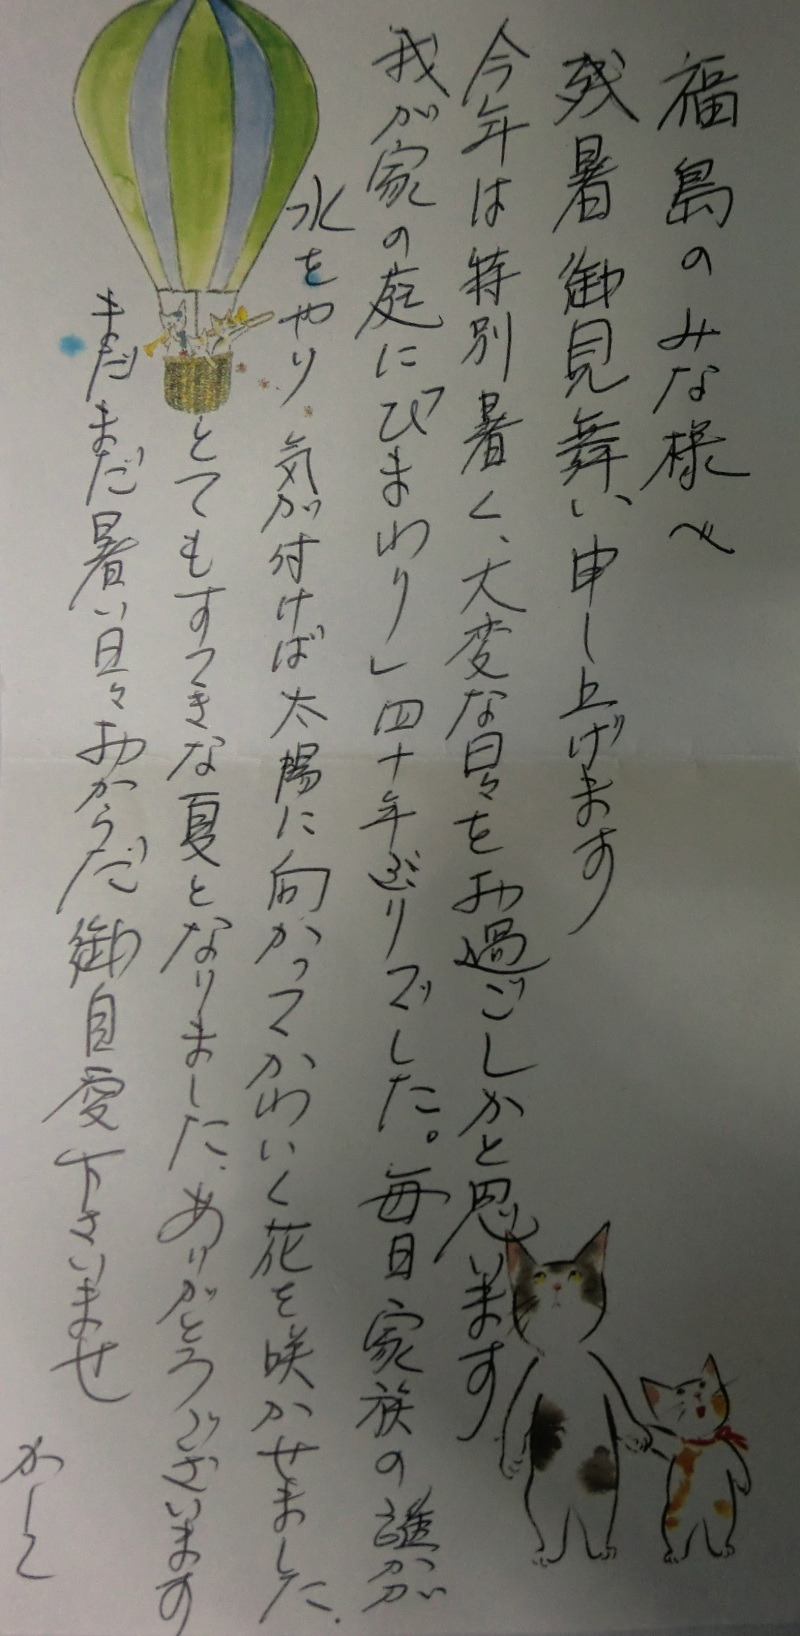 福島のみな様へ
残暑御見舞い申し上げます
今年は特別暑く、大変な日々をお過ごしかと思います
我が家の庭にひまわり」四十年ぶりでした。毎日家族の誰かが
水をやり 気が付けば太陽に向かってかわいく花を咲かせました。
とてもすてきな夏となりました。ありがとうございます
まだまだ暑い日々おからだ御自愛下さいませ
かしこ